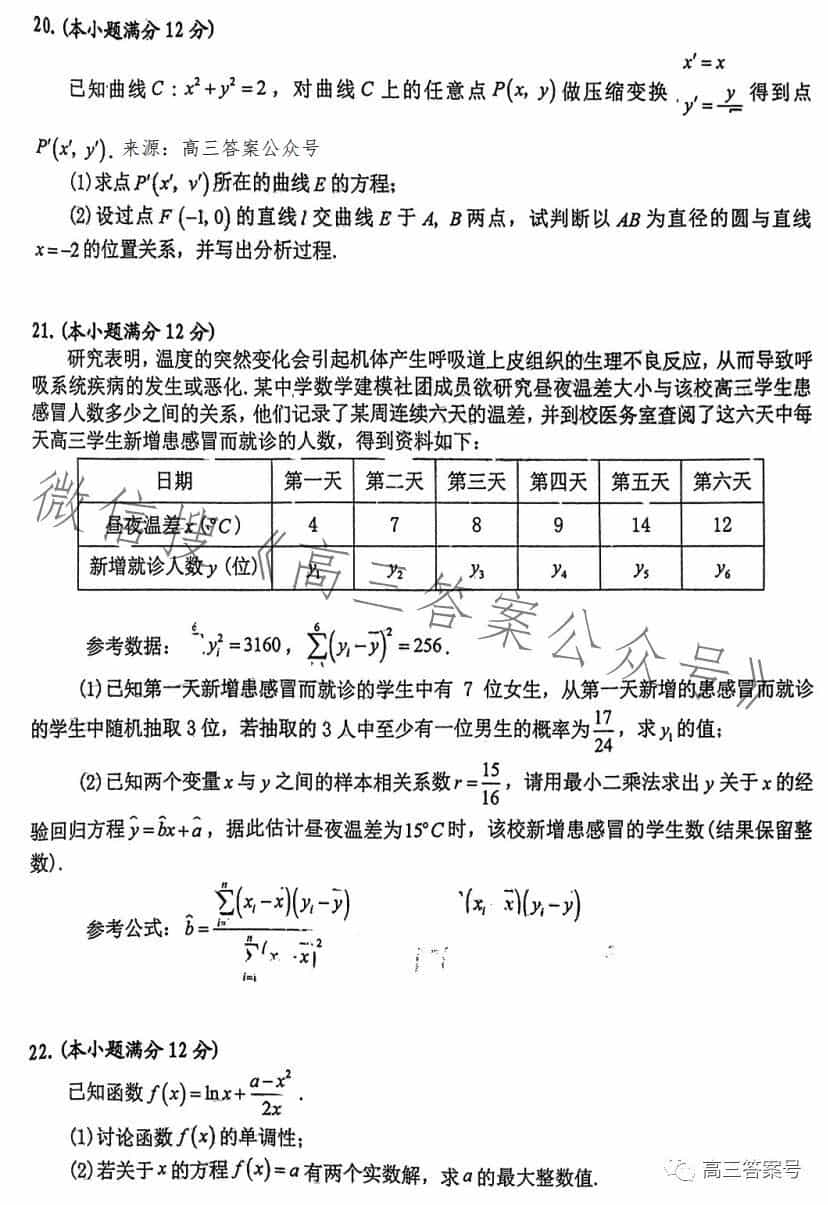 20. (本小题满分12分)
x′ = x
已知曲线 C : x² + y² = 2，对曲线 C 上的任意点 P(x, y) 做压缩变换 y′ = y 得到点
P′(x′, y′). 来源：高三答案公众号
(1) 求点 P′(x′, y′) 所在的曲线 E 的方程;
(2) 设过点 F (−1, 0) 的直线 l 交曲线 E 于 A, B 两点，试判断以 AB 为直径的圆与直线
x = −2 的位置关系，并写出分析过程.
21. (本小题满分12分)
研究表明, 温度的突然变化会引起机体产生呼吸道上皮组织的生理不良反应, 从而导致呼
吸系统疾病的发生或恶化. 某中学数学建模社团成员欲研究昼夜温差大小与该校高三学生患
感冒人数多少之间的关系, 他们记录了某周连续六天的温差, 并到校医务室查阅了这六天中每
天高三学生新增患感冒而就诊的人数, 得到资料如下：
日期 第一天 第二天 第三天 第四天 第五天 第六天
昼夜温差 x (°C) 4 7 8 9 14 12
新增就诊人数 y (位) y₁ y₂ y₃ y₄ y₅ y₆
微信搜《高三答案公众号》
参考数据： yᵢ² = 3160， ∑(yᵢ − ȳ)² = 256.
(1) 已知第一天新增患感冒而就诊的学生中有 7 位女生，从第一天新增的患感冒而就诊
的学生中随机抽取 3 位，若抽取的 3 人中至少有一位男生的概率为 17/24，求 y₁ 的值;
(2) 已知两个变量 x 与 y 之间的样本相关系数 r = 15/16，请用最小二乘法求出 y 关于 x 的经
验回归方程 ŷ = b̂x + â，据此估计昼夜温差为 15°C 时，该校新增患感冒的学生数 (结果保留整
数).
参考公式： b̂ = ∑(xᵢ − x̄)(yᵢ − ȳ) / ∑(x x̄)² (xᵢ x̄)(yᵢ − ȳ)
22. (本小题满分12分)
已知函数 f(x) = ln x + (a − x²)/2x .
(1) 讨论函数 f(x) 的单调性;
(2) 若关于 x 的方程 f(x) = a 有两个实数解，求 a 的最大整数值.
高三答案号